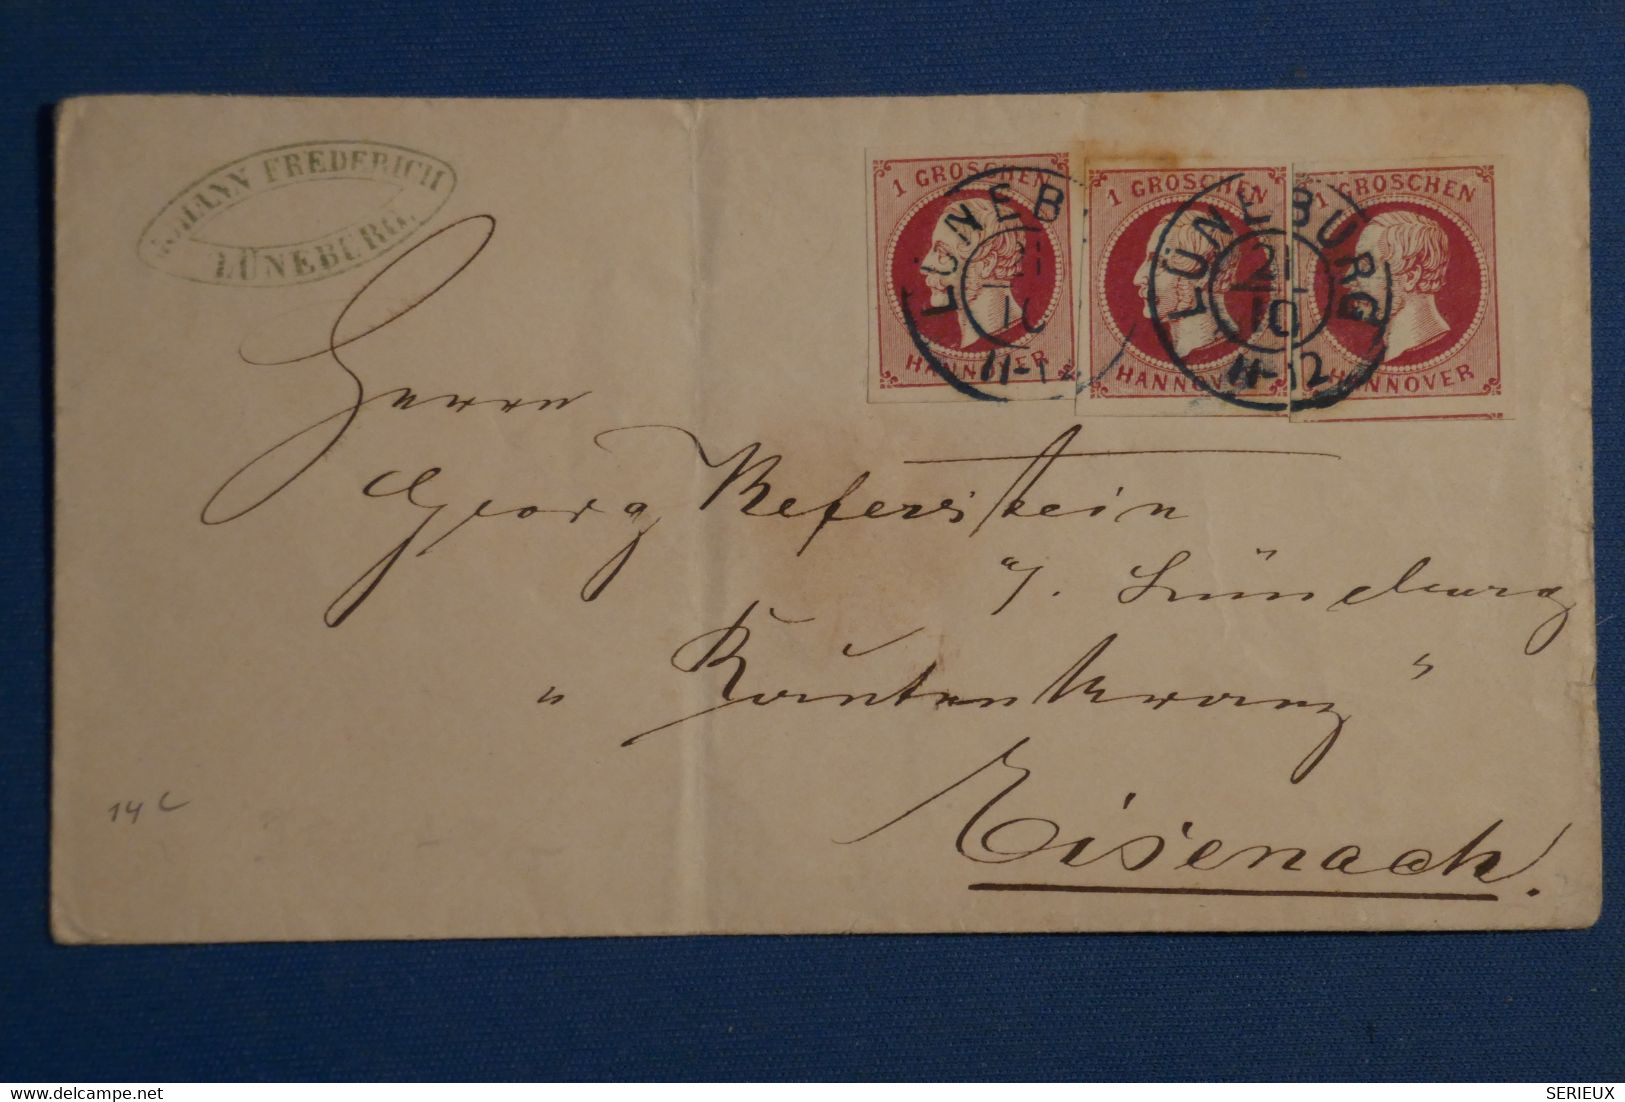 JOHANN FREDERICH
LÜNEBURG.
1 GROSCHEN
HANNOVER
1 GROSCHEN
HANNOVER
1 GROSCHEN
HANNOVER
LÜNEB
21
10
11-1
LÜNEBURG
21
10
11-12
Herrn
Georg Keferstein
a/. Lüneburg
"Rautenkranz"
Eisenach.
14 c
delcampe.net
SERIEUX